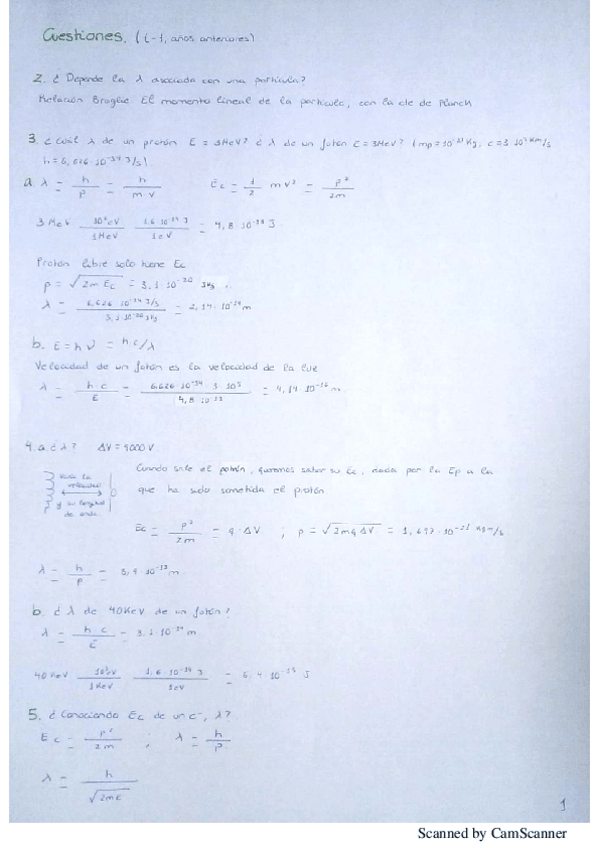 Cuestiones. (t-1, años anteriores)
2. ¿Depende la λ asociada con una partícula?
Relación Broglie El momento lineal de la partícula, con la cte de Planck
3. ¿Cuál λ de un protón E = 3MeV? ¿λ de un fotón E = 3MeV? (mp = 10⁻²⁷ Kg, c = 3·10⁵ Km/s
h = 6,626·10⁻³⁴ J/s)
a. λ = h/p = h/(m·v) Ec = 1/2 m v² = p²/2m
3 MeV 10⁶eV/1MeV 1,6·10⁻¹⁹ J/1eV = 4,8·10⁻¹³ J
Protón libre solo tiene Ec
p = √(2m Ec) = 3,1·10⁻²⁰ JKg
λ = 6,626·10⁻³⁴ J/s / 3,1·10⁻²⁰ JKg = 2,14·10⁻¹⁴ m
b. E = hν = hc/λ
Velocidad de un fotón es la velocidad de la luz
λ = h·c/E = 6,626·10⁻³⁴ · 3·10⁵ / 4,8·10⁻¹³ = 4,14·10⁻¹⁶ m
4. a. ¿λ? ΔV = 9000 V
Cuando sale el protón, queremos saber su Ec, dada por la Ep a la
que ha sido sometida el protón
la
velocidad
y su longitud
de onda
Ec = p²/2m = q·ΔV ; p = √(2mqΔV) = 1,697·10⁻²¹ Kg m/s
λ = h/p = 3,9·10⁻¹³ m
b. ¿λ de 40KeV de un fotón?
λ = h·c/E = 3,1·10⁻¹⁴ m
40 KeV 10³eV/1KeV 1,6·10⁻¹⁹ J/1eV = 6,4·10⁻¹⁵ J
5. ¿Conociendo Ec de un e⁻, λ?
Ec = p²/2m ; λ = h/p
λ = h/√(2mE)
1
Scanned by CamScanner